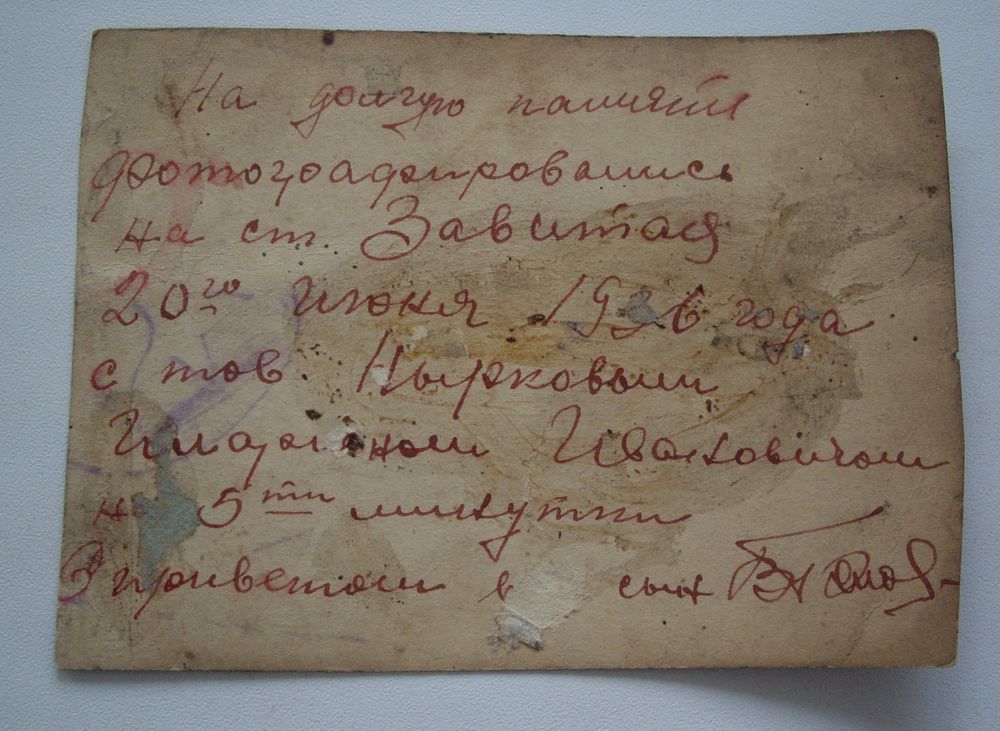 На долгую память
фотографировались
на ст. Завитая
20го Июня 1936 года
с тов. Нырковым
Иваковичом
на 5ти минутки
З приветом в сын